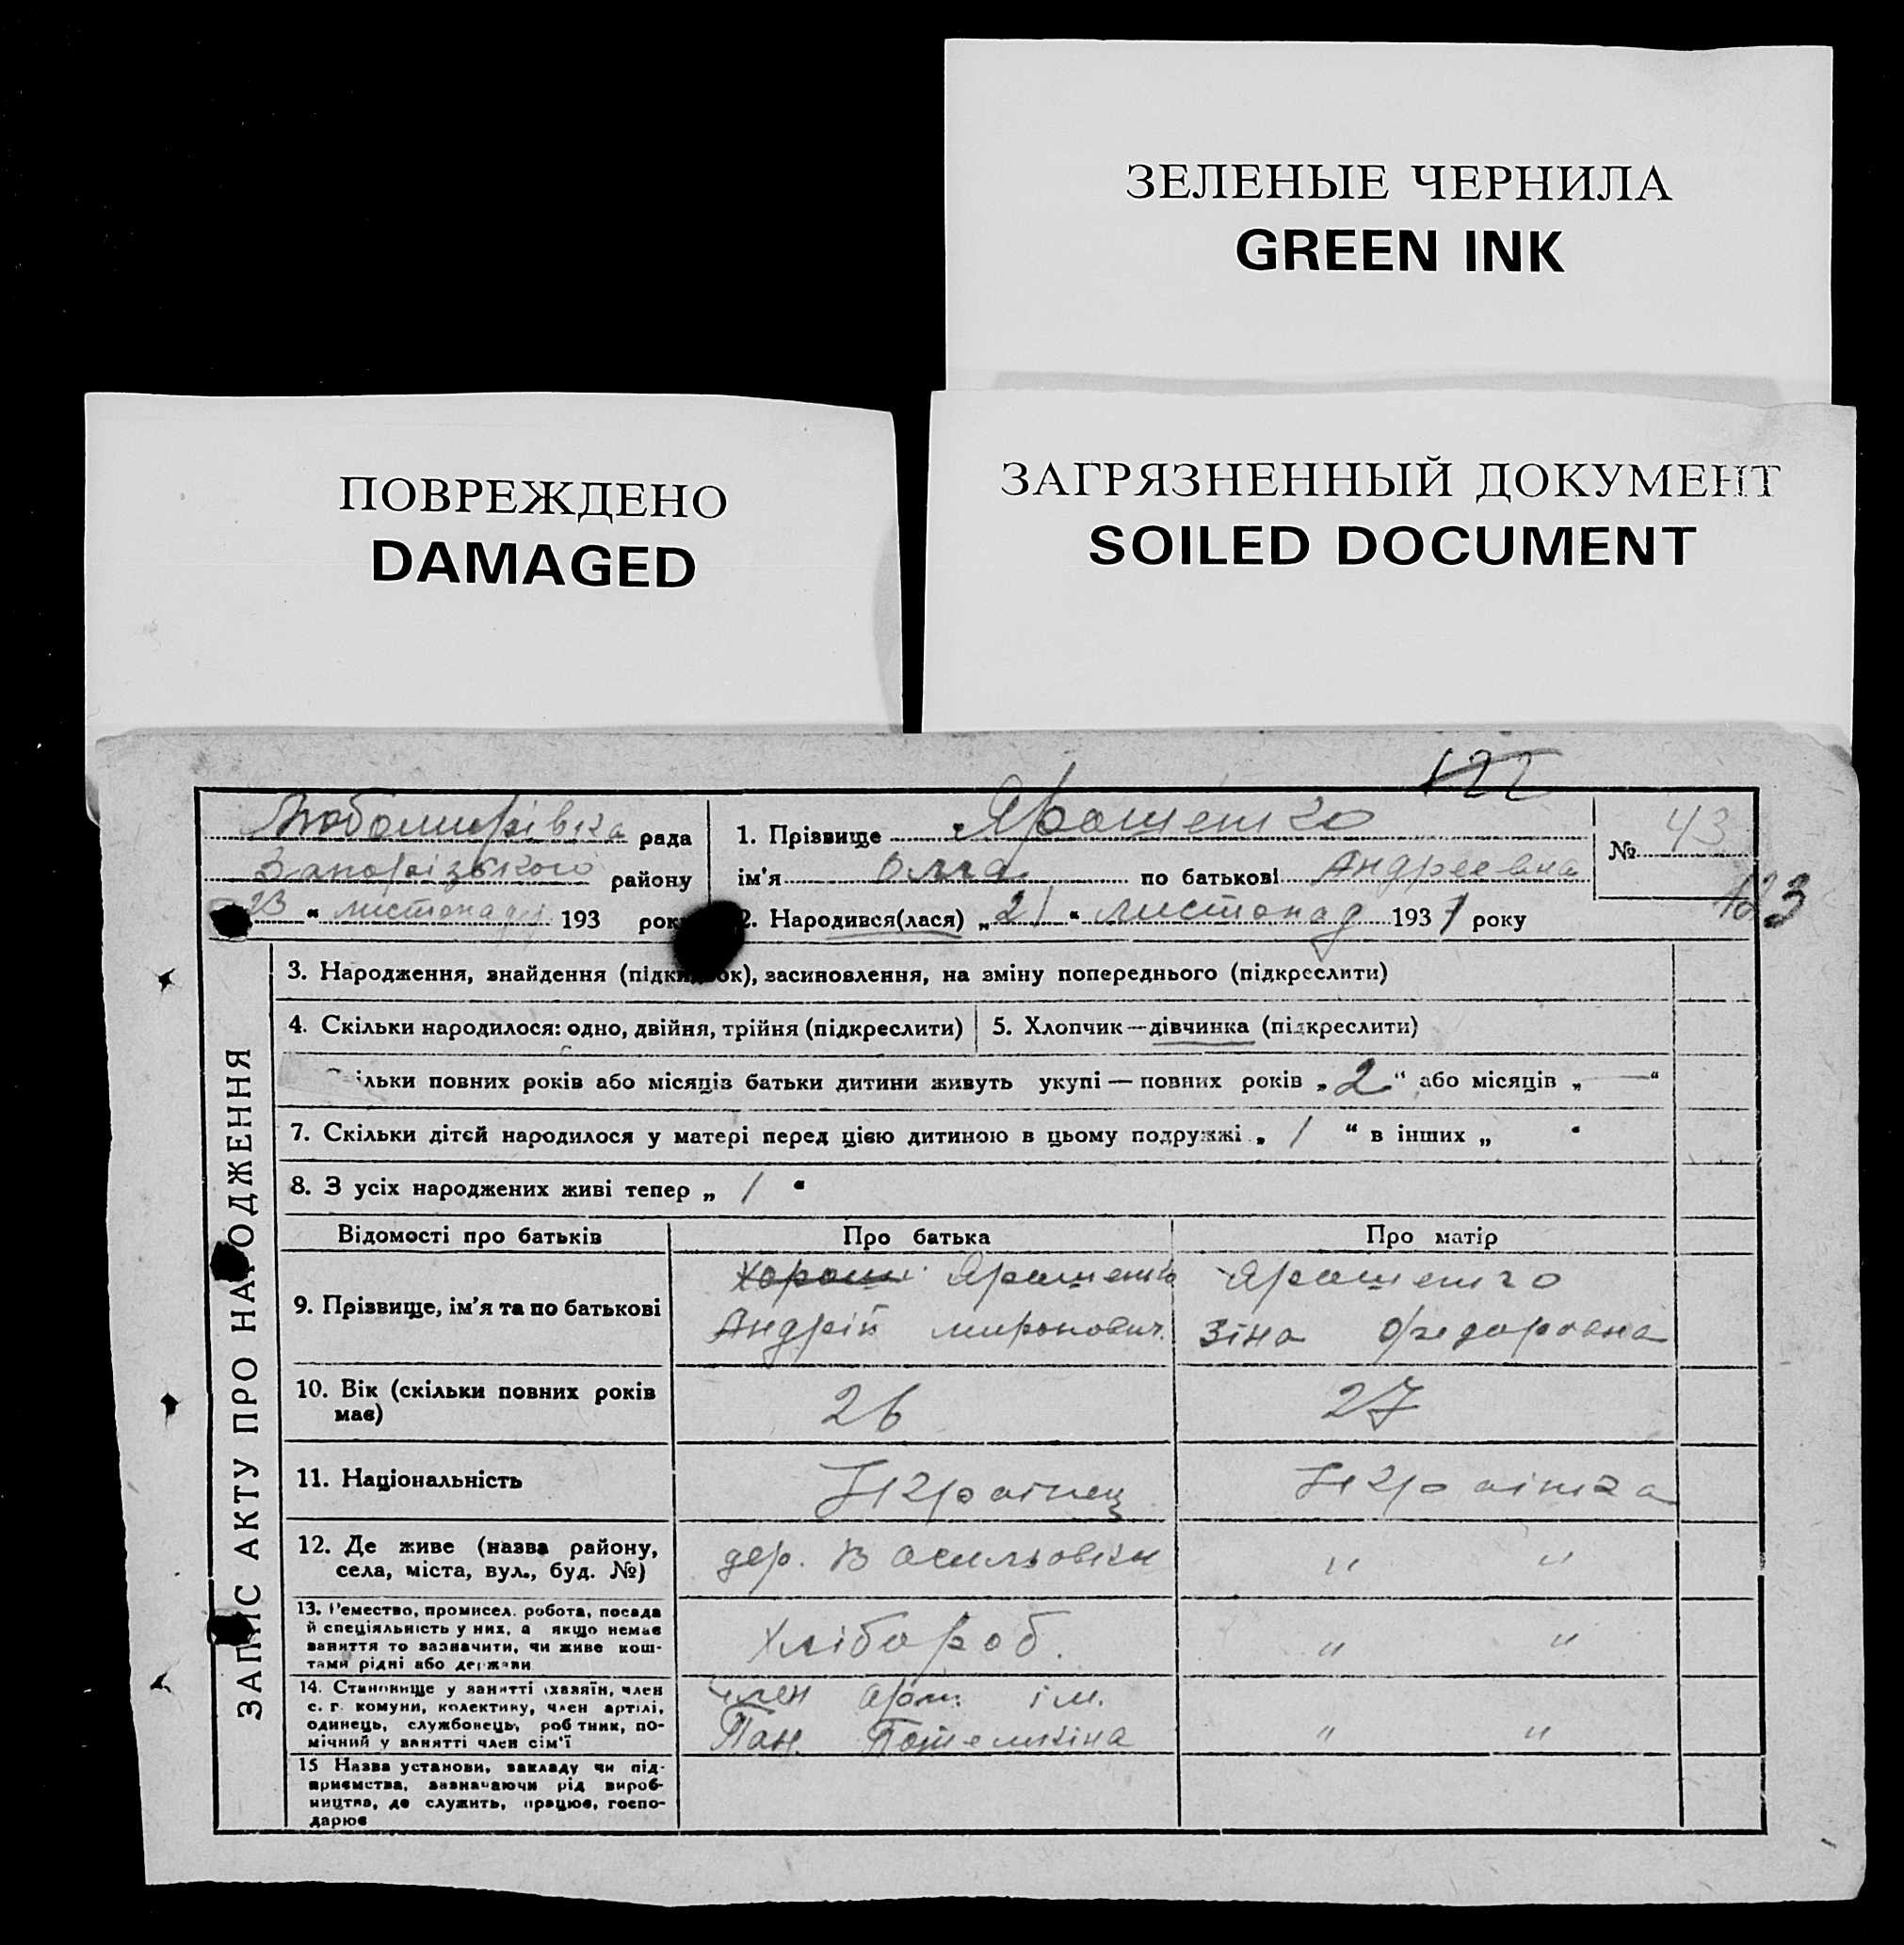 ЗЕЛЕНЫЕ ЧЕРНИЛА
GREEN INK
ПОВРЕЖДЕНО
DAMAGED
ЗАГРЯЗНЕННЫЙ ДОКУМЕНТ
SOILED DOCUMENT
122
Любомирівка рада
Запорізького району
23 " листопада 193 року
1. Прізвище Ярошенко
ім'я Олга по батькові Андреевна
2. Народився(лася) „21" листопад 1937 року
№ 43
123
ЗАПИС АКТУ ПРО НАРОДЖЕННЯ
3. Народження, знайдення (підкидьок), засиновлення, на зміну попереднього (підкреслити)
4. Скільки народилося: одно, двійня, трійня (підкреслити) 5. Хлопчик—дівчинка (підкреслити)
Скільки повних років або місяців батьки дитини живуть укупі — повних років „2" або місяців „—"
7. Скільки дітей народилося у матері перед цією дитиною в цьому подружжі „ 1 " в інших „ "
8. З усіх народжених живі тепер „ 1 "
Відомості про батьків Про батька Про матір
9. Прізвище, ім'я та по батькові
Ярошенко
Андрій миронович
Ярошенко
Зіна Фједоровна
10. Вік (скільки повних років має)
26 27
11. Національність
Українец Українка
12. Де живе (назва району,
села, міста, вул., буд. №)
дер. Васильовки " "
13. Ремество, промисел. робота, посада
й спеціяльність у них, а якщо немає
заняття то зазначити, чи живе кош-
тами рідні або держави
Хлібороб. " "
14. Становище у занятті (хазяїн, член
с. г. комуни, колективу, член артілі,
одинець, службовець, робітник, по-
мічний у занятті член сім'ї
Член арт. ім.
Пан. Потемкіна " "
15 Назва установи, закладу чи під-
приємства, зазначаючи рід вироб-
ництва, де служить, працює, госпо-
дарює